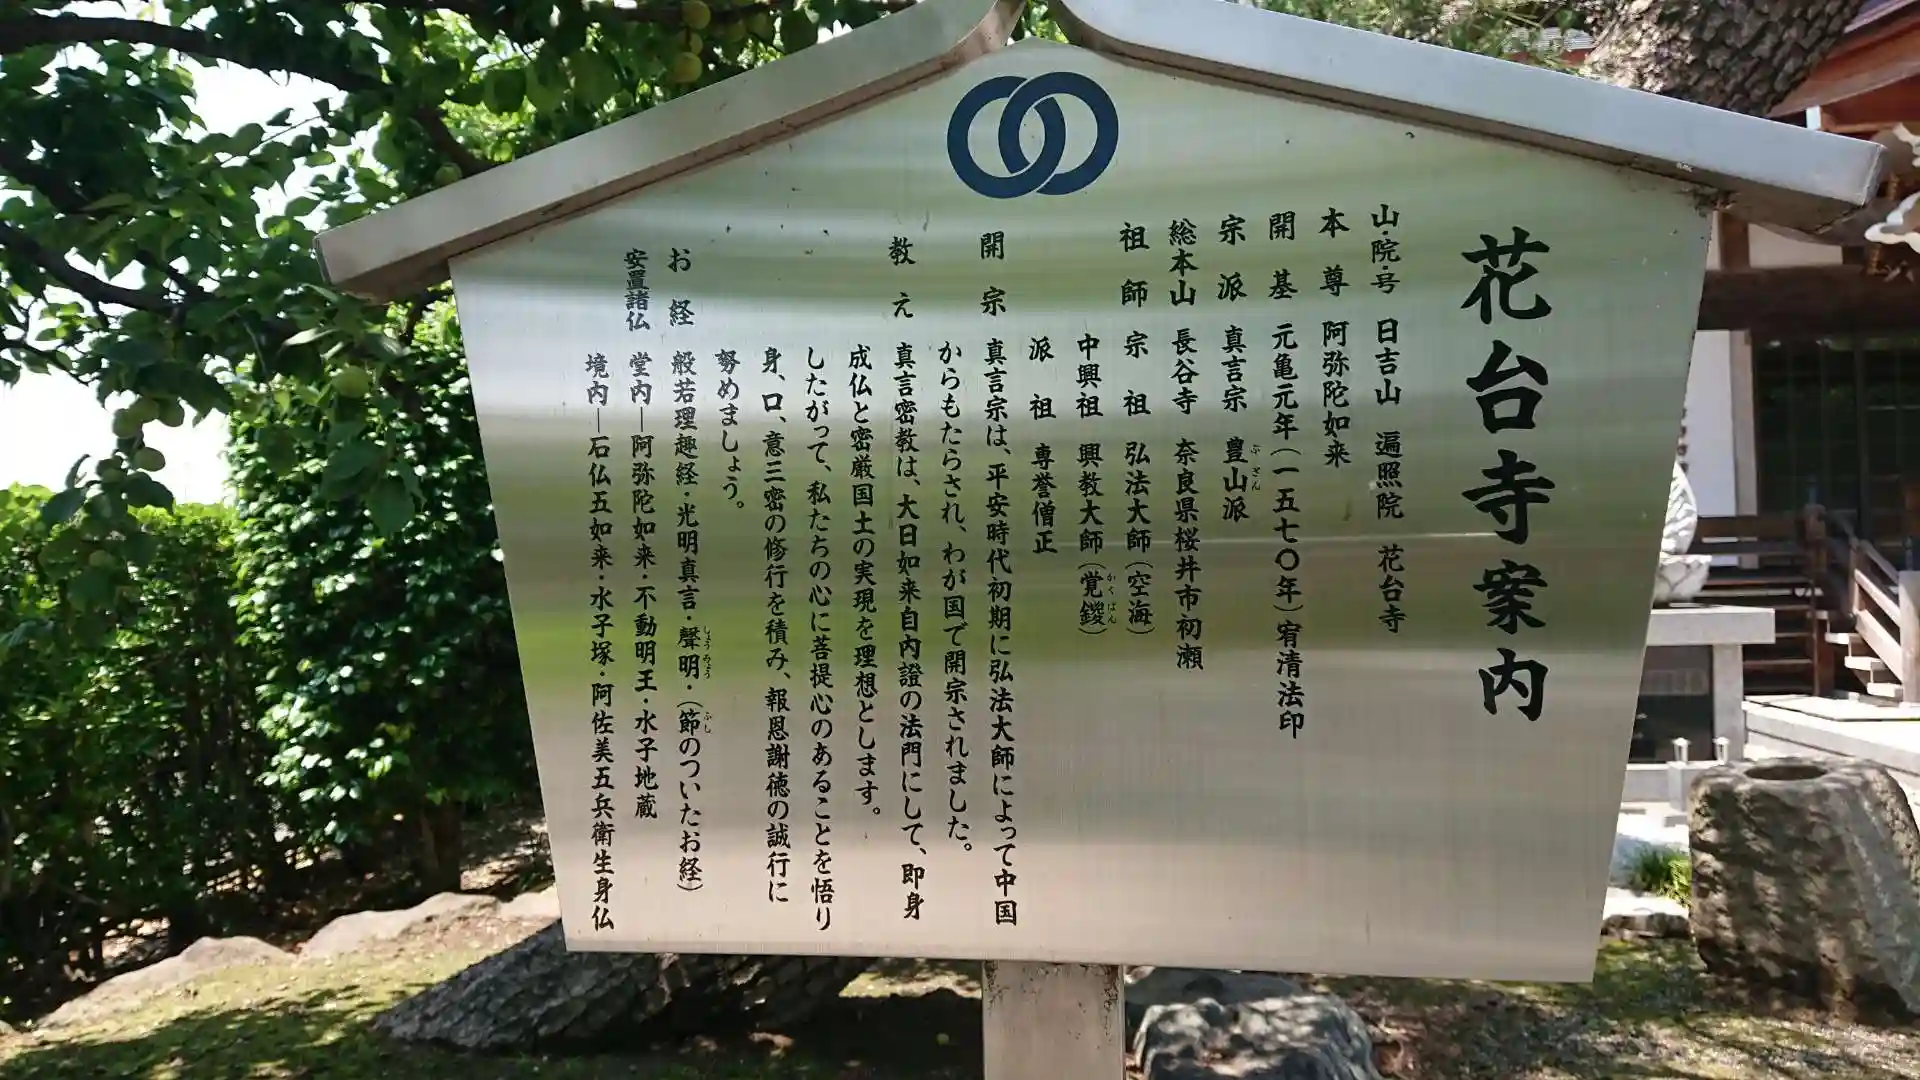 花台寺案内
山・院・号 日吉山 遍照院 花台寺
本尊 阿弥陀如来
開基 元亀元年(一五七〇年)宥清法印
宗派 真言宗 豊山派
ぶさん
総本山 長谷寺 奈良県桜井市初瀬
祖師 宗祖 弘法大師(空海)
中興祖 興教大師(覚鑁)
かくばん
派祖 専誉僧正
開宗 真言宗は、平安時代初期に弘法大師によって中国
からもたらされ、わが国で開宗されました。
教え 真言密教は、大日如来自内證の法門にして、即身
成仏と密厳国土の実現を理想とします。
したがって、私たちの心に菩提心のあることを悟り
身、口、意三密の修行を積み、報恩謝徳の誠行に
努めましょう。
お経 般若理趣経・光明真言・聲明・(節のついたお経)
しょうみょう ふし
安置諸仏 堂内―阿弥陀如来・不動明王・水子地蔵
境内―石仏五如来・水子塚・阿佐美五兵衛生身仏